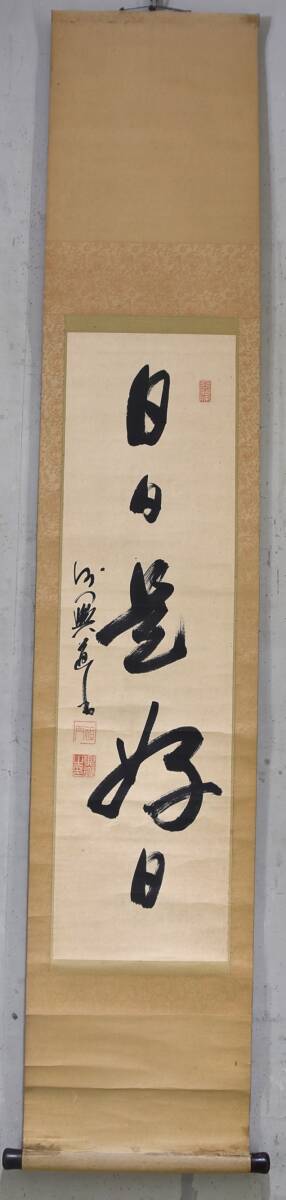 日日是好日
興道書